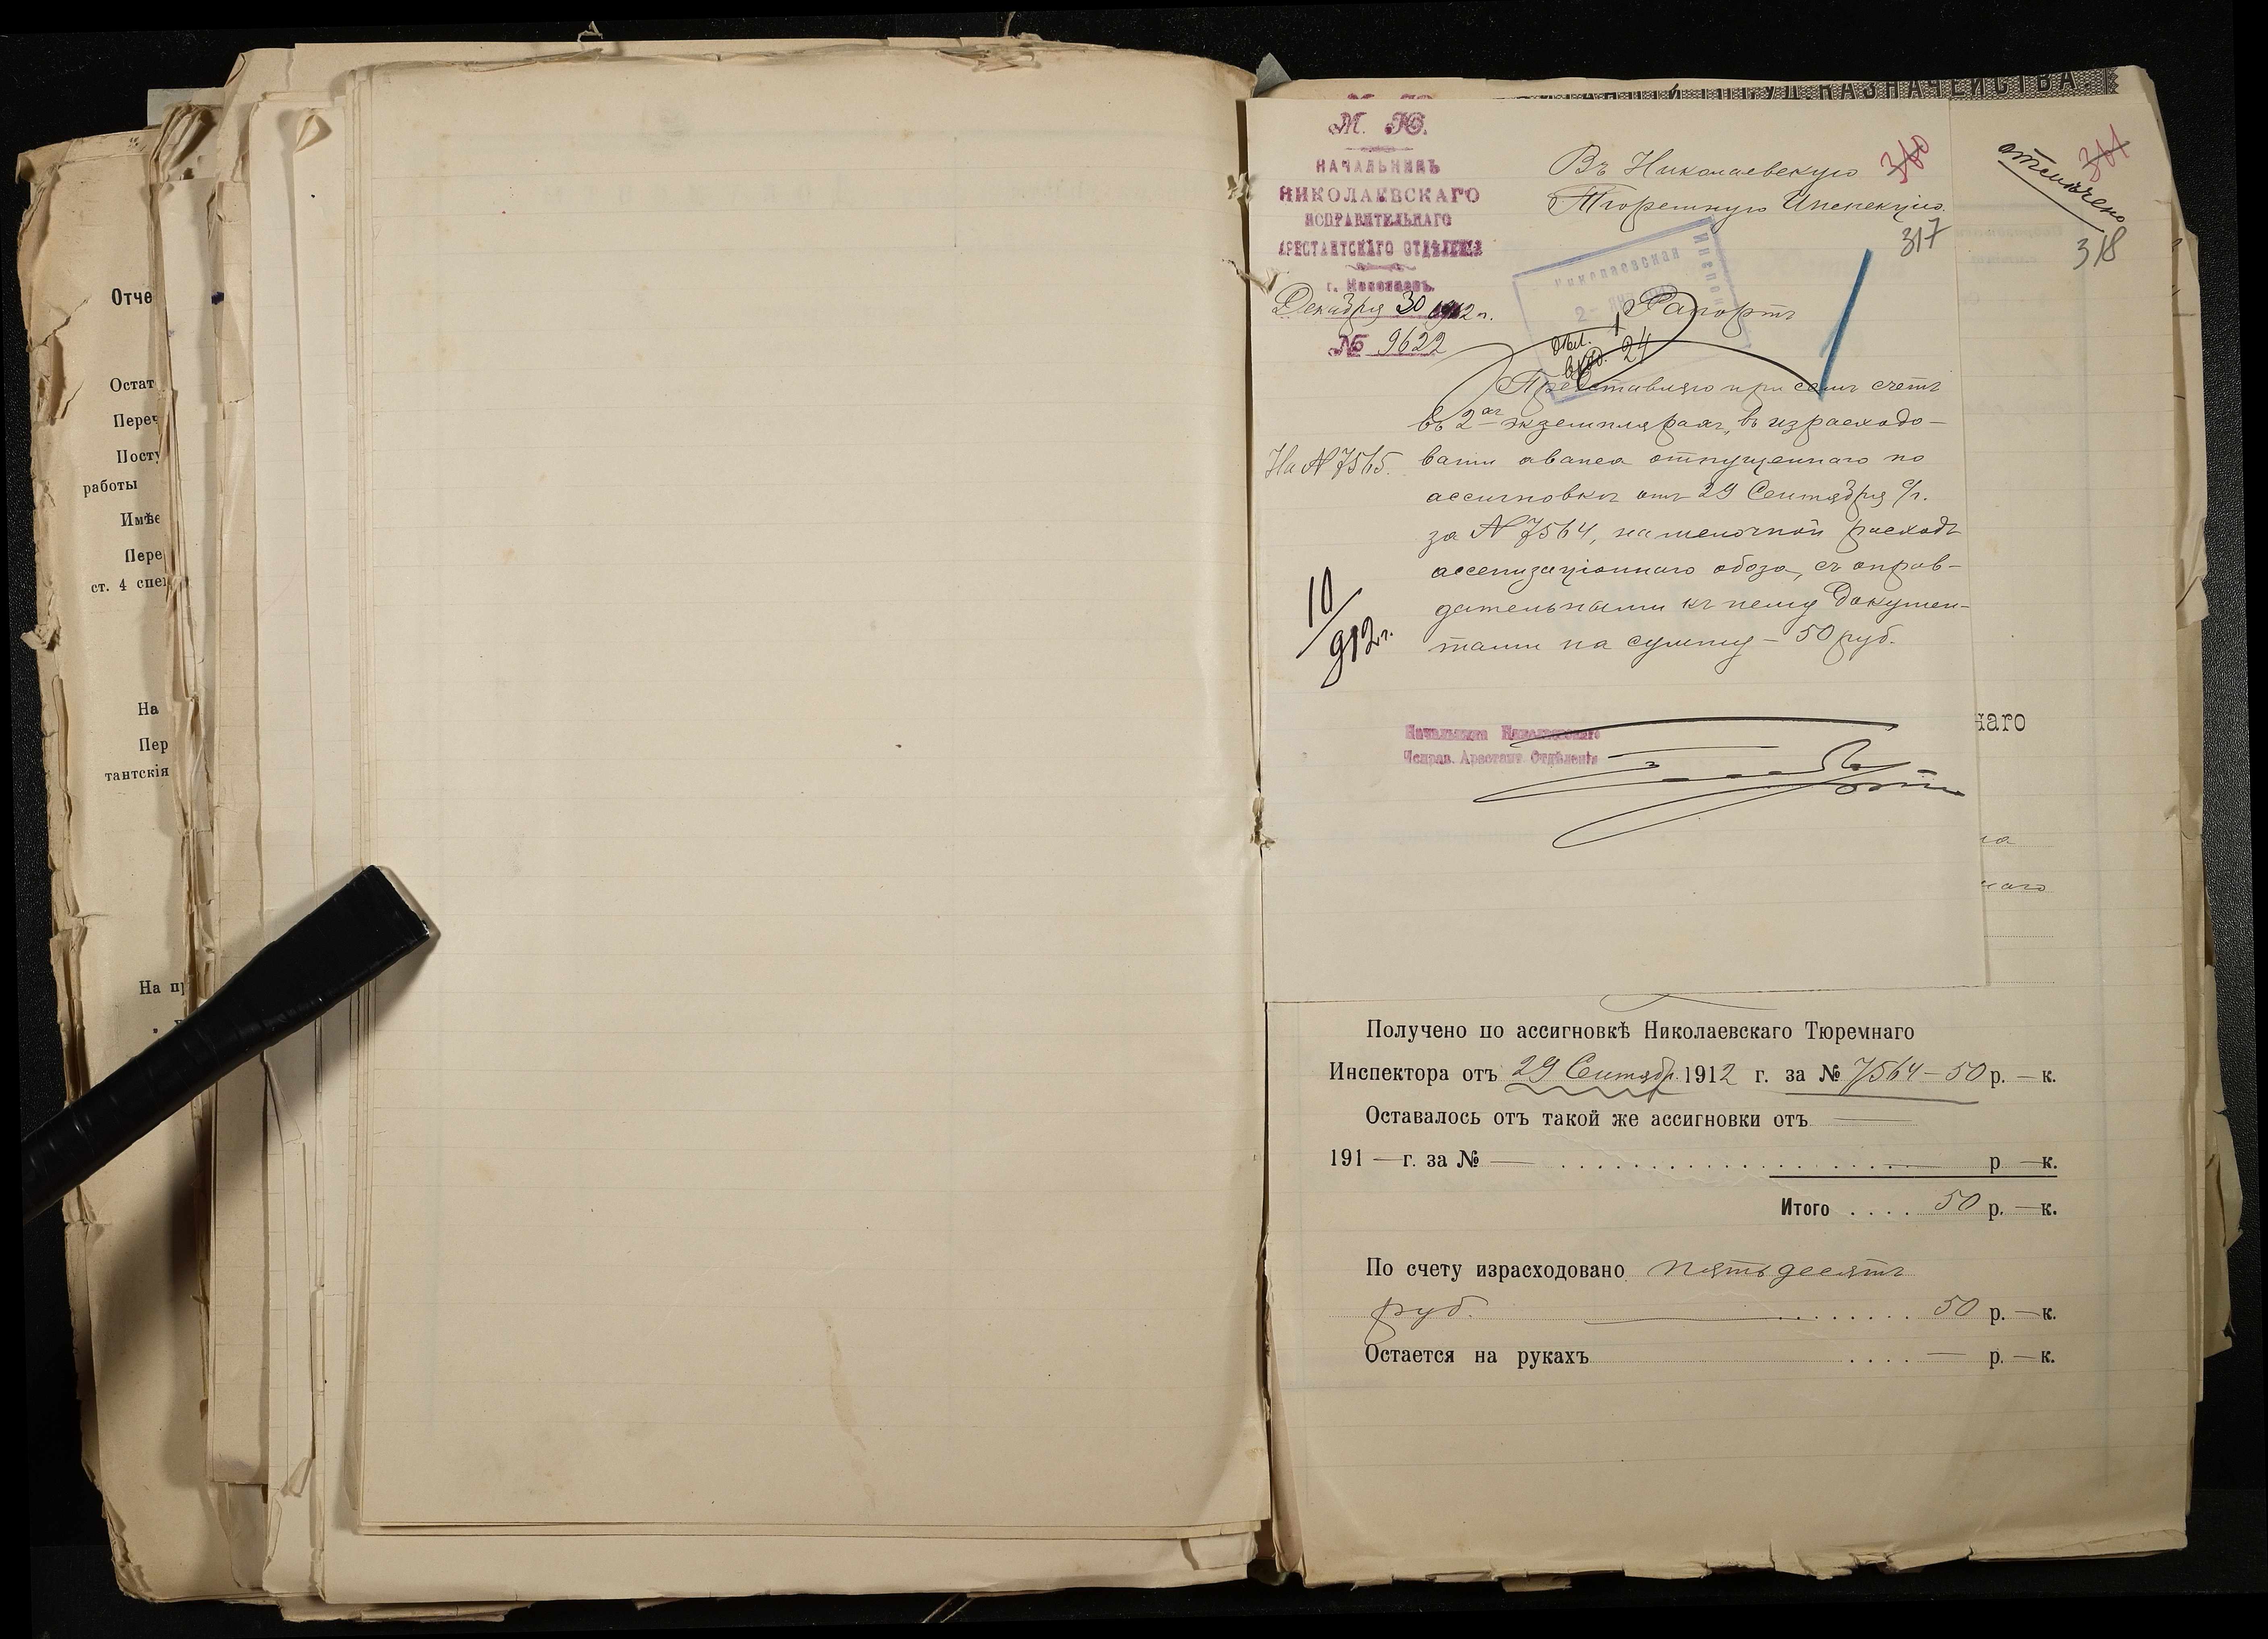 Отче
Остат
Переч
Посту
работы
Имѣе
Пере
ст. 4 спец
На
Пер
тантскія
На пр
КАЗНАЧЕЙСТВА
М. Ю.
НАЧАЛЬНИКЪ
НИКОЛАЕВСКАГО
ИСПРАВИТЕЛЬНАГО
АРЕСТАНТСКАГО ОТДѢЛЕНІЯ
г. Николаевъ.
Декабря 30 1912 г.
№ 9622
Въ Николаевскую
Тюремную Инспекцію.
360
317
361
отмѣчено
318
Николаевская
Рапортъ
вход. 24
Представляю при семъ счетъ
въ 2ахъ экземплярахъ, въ израсходо-
На № 7565.
ваніи аванса отпущеннаго по
ассигновкѣ отъ 29 Сентября с/г.
за № 7564, на мелочной расходъ
ассенизаціоннаго обоза, съ оправ-
дательными къ нему докумен-
тами на сумму - 50 руб.
10/912 г.
Начальникъ Николаевскаго
Исправ. Арестант. Отдѣленія
наго
на
наго
Получено по ассигновкѣ Николаевскаго Тюремнаго
Инспектора отъ 29 Сентябр. 1912 г. за № 7564 - 50 р. — к.
Оставалось отъ такой же ассигновки отъ —
191 — г. за № — . . . . . . . . . . р — к.
Итого . . . . 50 р. — к.
По счету израсходовано пятьдесятъ
руб. — . . . . . . . . 50 р. — к.
Остается на рукахъ . . . . — р. — к.